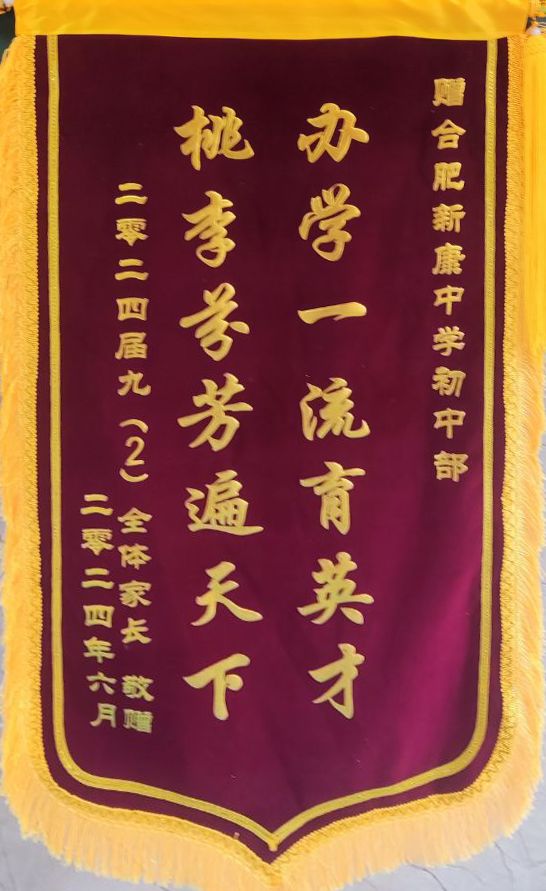 赠合肥新康中学初中部
办学一流育英才
桃李芬芳遍天下
二零二四届九（2）全体家长 敬赠
二零二四年六月